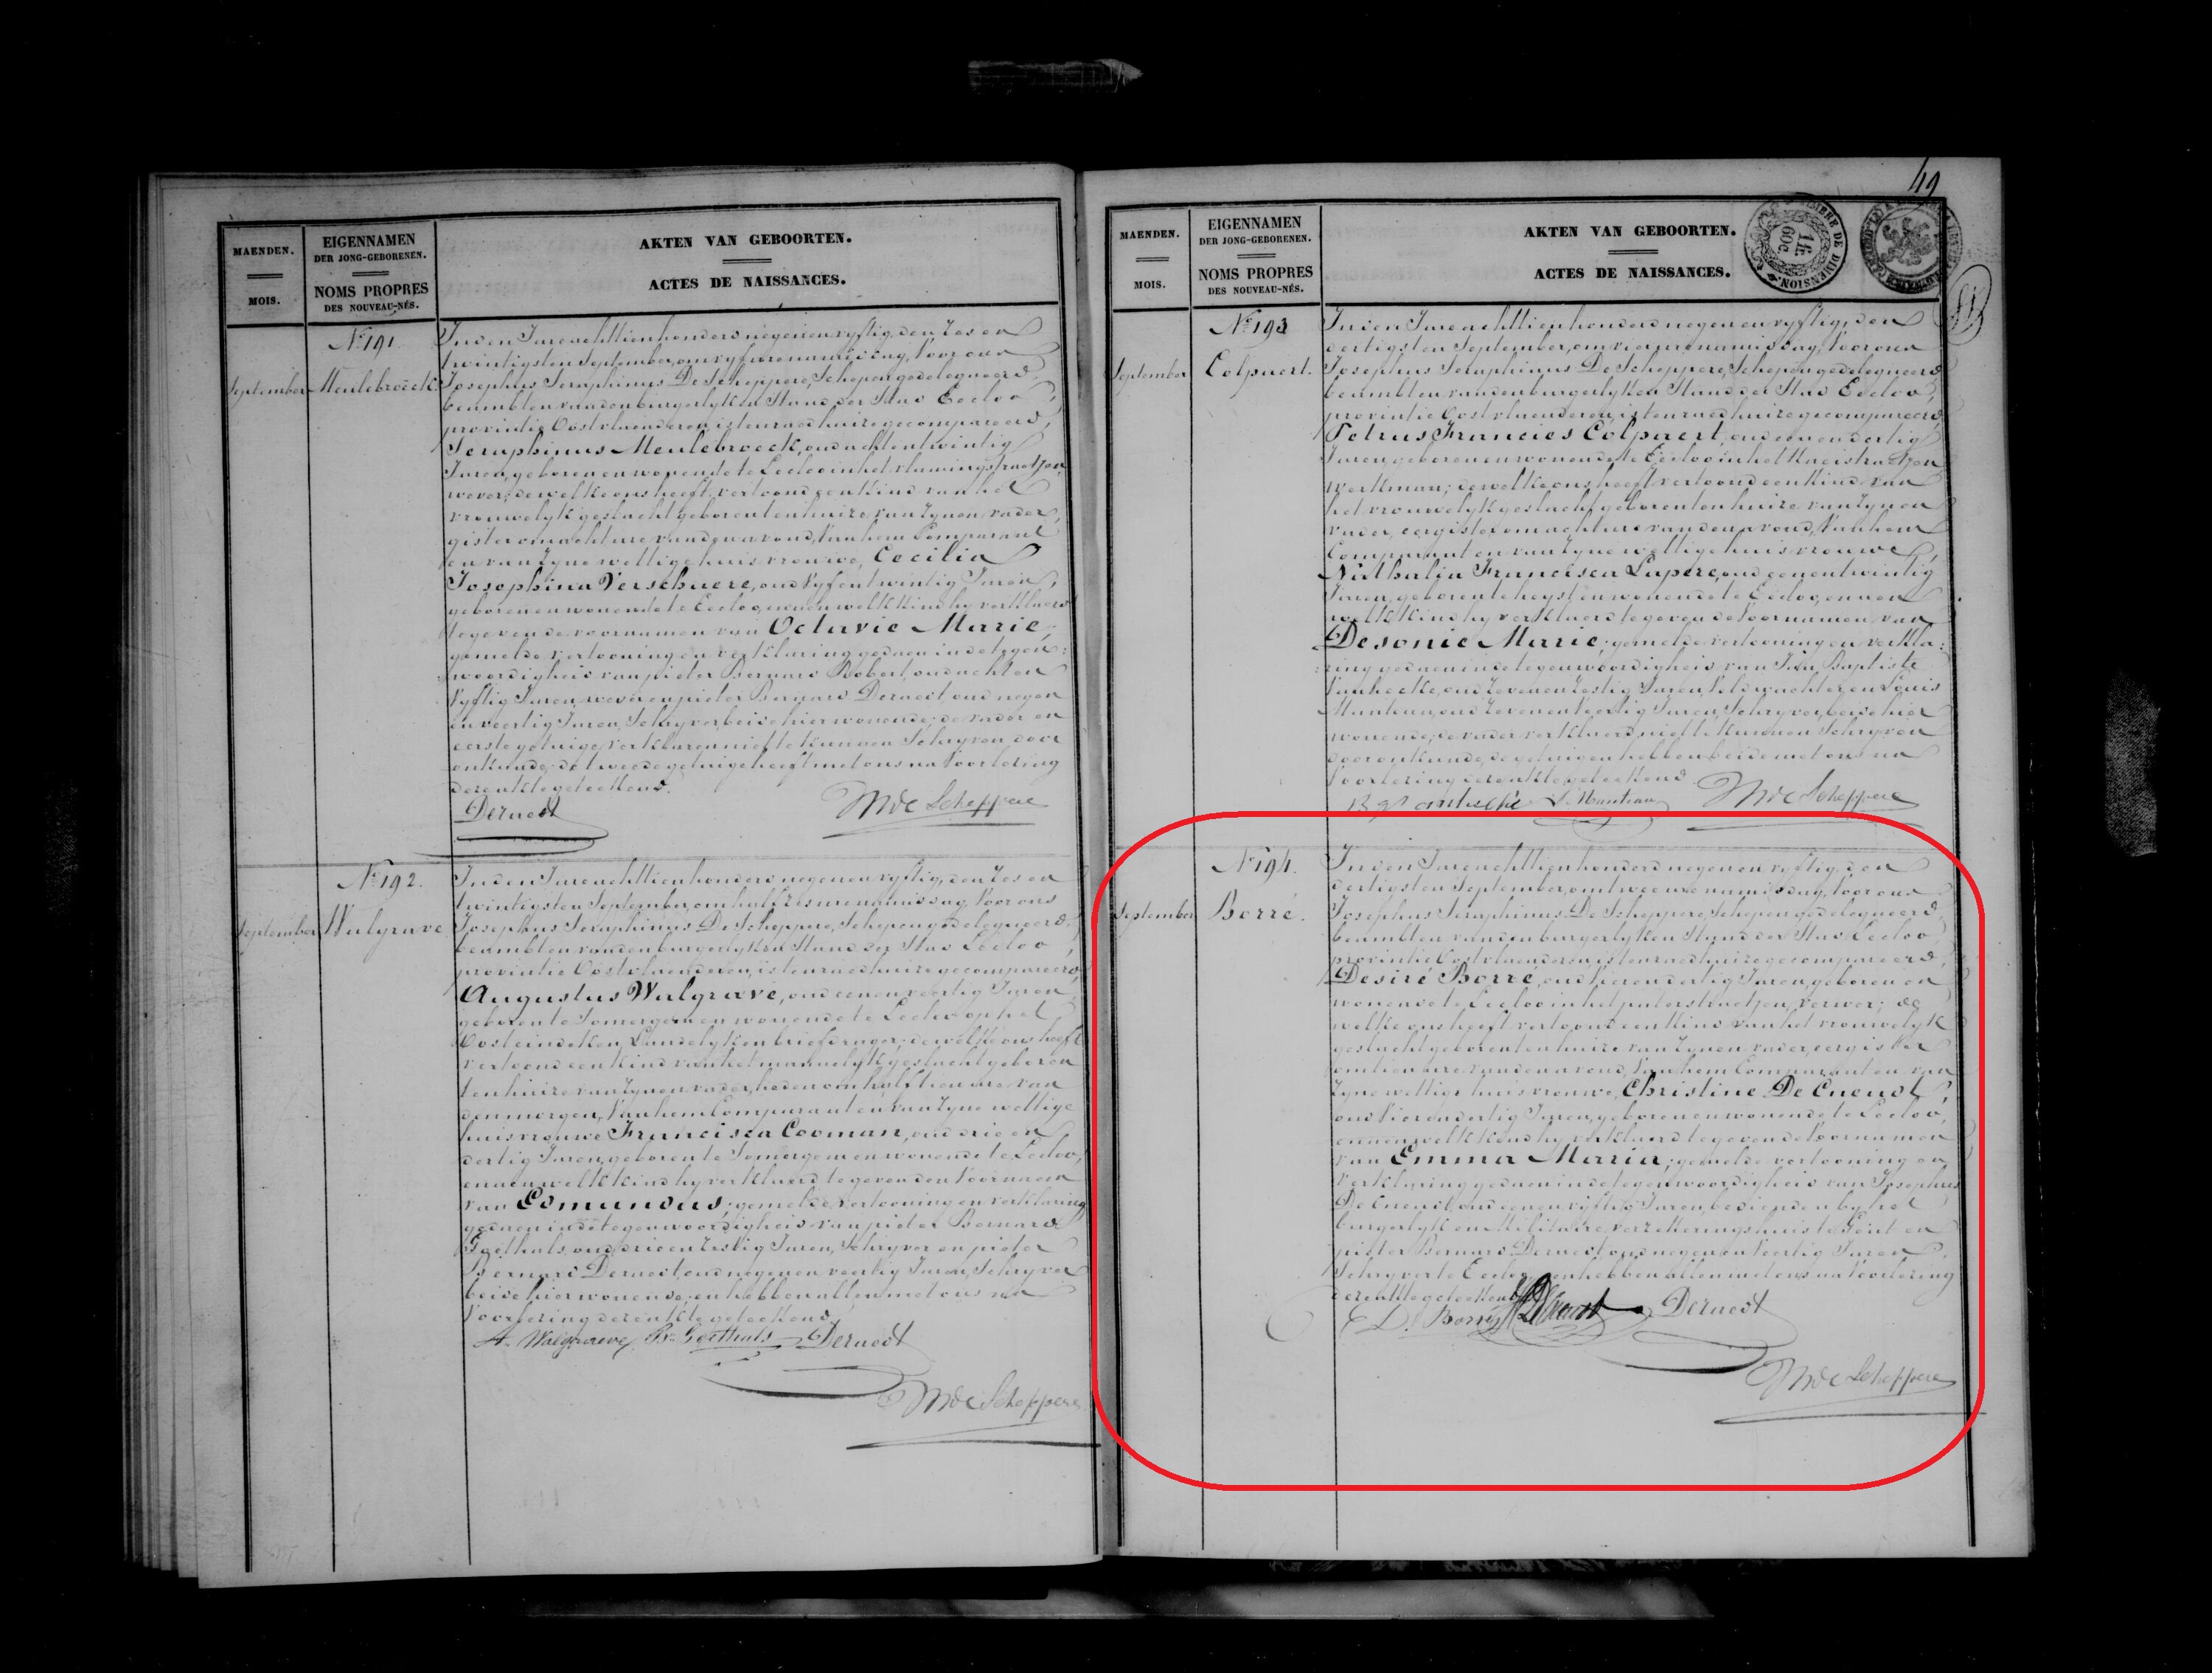 49
MAENDEN.
MOIS.
EIGENNAMEN
DER JONG-GEBORENEN.
NOMS PROPRES
DES NOUVEAU-NÉS.
AKTEN VAN GEBOORTEN.
ACTES DE NAISSANCES.
N.º 191.
September Meulebroeck
In den Jare achttien honderd negen en vyftig, den zes en
twintigsten September, om vyf uren namiddag, Voor ons
Josephus Seraphinus De Scheppere, Schepen gedelegueerd,
beambten van den burgerlyken Stand der Stad Eecloo,
provintie Oostvlaenderen, is ten raedhuize gecompareerd,
Seraphinus Meulebroeck, oud acht en twintig
Jaren, geboren en wonende te Eecloo in het vlamingstraetjen,
wever; dewelke ons heeft vertoond een kind van het
vrouwelyk geslacht geboren ten huize van zynen vader,
gister om acht ure van den avond, Van hem Comparant
en van zyne wettige huisvrouwe, Cecilia
Josephina Verschaere, oud vyf en twintig Jaren,
geboren en wonende te Eecloo, en aen welk kind hy verklaerd
te geven de voornamen van Octavie Marie;
gemelde vertooning en verklaring gedaen in de tegen:
woordigheid van pieter Bernard Robert, oud acht en
Vyftig Jaren, wever en pieter Bernard Dernedt, oud negen
en veertig Jaren, Schryver, beide hier wonende; de vader en
eerste getuige verklaren niet te kunnen Schryven door
onkunde; de tweede getuige heeft met ons na Voorlezing
dezer akte geteekend.
Dernedt De Scheppere
N.º 192.
September Walgrave
In den Jare achttien honderd negen en vyftig, den zes en
twintigsten September, om half zes ure namiddag, Voor ons
Josephus Seraphinus De Scheppere, Schepen gedelegueerd,
beambten van den burgerlyken Stand der Stad Eecloo,
provintie Oostvlaenderen, is ten raedhuize gecompareerd,
Augustus Walgrave, oud een en veertig Jaren
geboren te Somergem en wonende te Eecloo op het
Oosteindeken, Landelyken briefdrager; dewelke ons heeft
vertoond een kind van het mannelyk geslacht geboren
ten huize van zynen vader, heden om half tien ure van
den morgen, Van hem Comparant en van zyne wettige
huisvrouwe Francisca Cooman, oud drie en
dertig Jaren, geboren te Somergem en wonende te Eecloo,
en aen welk kind hy verklaerd te geven den Voornaem
van Edmundus; gemelde vertooning en verklaring
gedaen in de tegenwoordigheid van pieter Bernard
Goethals, oud drie en zestig Jaren, Schryver en pieter
Bernard Dernedt, oud negen en veertig Jaren, Schryver
beide hier wonende; en hebben allen met ons na
Voorlezing dezer akte geteekend,
A. Walgraeve Goethals Dernedt
De Scheppere
MAENDEN.
MOIS.
EIGENNAMEN
DER JONG-GEBORENEN.
NOMS PROPRES
DES NOUVEAU-NÉS.
AKTEN VAN GEBOORTEN.
ACTES DE NAISSANCES.
TIMBRE DE DIMENSION
N.º 193
September Colpaert.
In den Jare achttien honderd negen en vyftig, den
dertigsten September, om vier uren namiddag, Voor ons
Josephus Seraphinus De Scheppere, Schepen gedelegueerd
beambten van den burgerlyken Stand der Stad Eecloo,
provintie Oostvlaenderen, is ten raedhuize gecompareerd,
Petrus Francies Colpaert, oud een en dertig
Jaren, geboren en wonende te Eecloo in het
werkman; dewelke ons heeft vertoond een kind van
het vrouwelyk geslacht geboren ten huize van zynen
vader, eergister om acht ure van den avond, Van hem
Comparant en van zyne wettige huisvrouwe
Nathalia Francisca Lapere, oud een en twintig
Jaren, geboren te heyst en wonende te Eecloo, en aen
welk kind hy verklaerd te geven de Voornamen van
Desonie Marie; gemelde vertooning en verkla:
ring gedaen in de tegenwoordigheid van Jan Baptiste
Vanhecke, oud zeven en zestig Jaren, Veldwachter en Louis
oud zeven en Veertig Jaren, Schryver, beide hier
wonende; de vader verklaerd niet te kunnen Schryven
door onkunde, de getuigen hebben beide met ons na
Voorlezing dezer akte geteekend
De Scheppere
N.º 194.
September Borré.
In den Jare achttien honderd negen en vyftig, den
dertigsten September, om twee ure namiddag, Voor ons
Josephus Seraphinus De Scheppere, Schepen gedelegueerd,
beambten van den burgerlyken Stand der Stad Eecloo,
provintie Oostvlaenderen, is ten raedhuize gecompareerd,
Desiré Borré, oud Vier en dertig Jaren, geboren en
wonende te Eecloo in het paterstraetjen, verwer; de
welke ons heeft vertoond een kind van het vrouwelyk
geslacht geboren ten huize van zynen vader, eergister
om tien ure van den avond, Van hem Comparant en van
zyne wettige huisvrouwe, Christine De Cneudt,
oud Vier en dertig Jaren, geboren en wonende te Eecloo,
en aen welk kind hy verklaerd te geven de Voornamen
van Emma Maria; gemelde vertooning en
verklaring gedaen in de tegenwoordigheid van Josephus
De Cneudt, oud een en vyftig Jaren, bedienden by het
burgerlyk en Militaire verzekeringshuis te Gent en
pieter Bernard Dernedt oud negen en Veertig Jaren
Schryver te Eecloo, en hebben allen met ons na Voorlezing
dezer akte geteekend
D. Borré Dernedt
De Scheppere